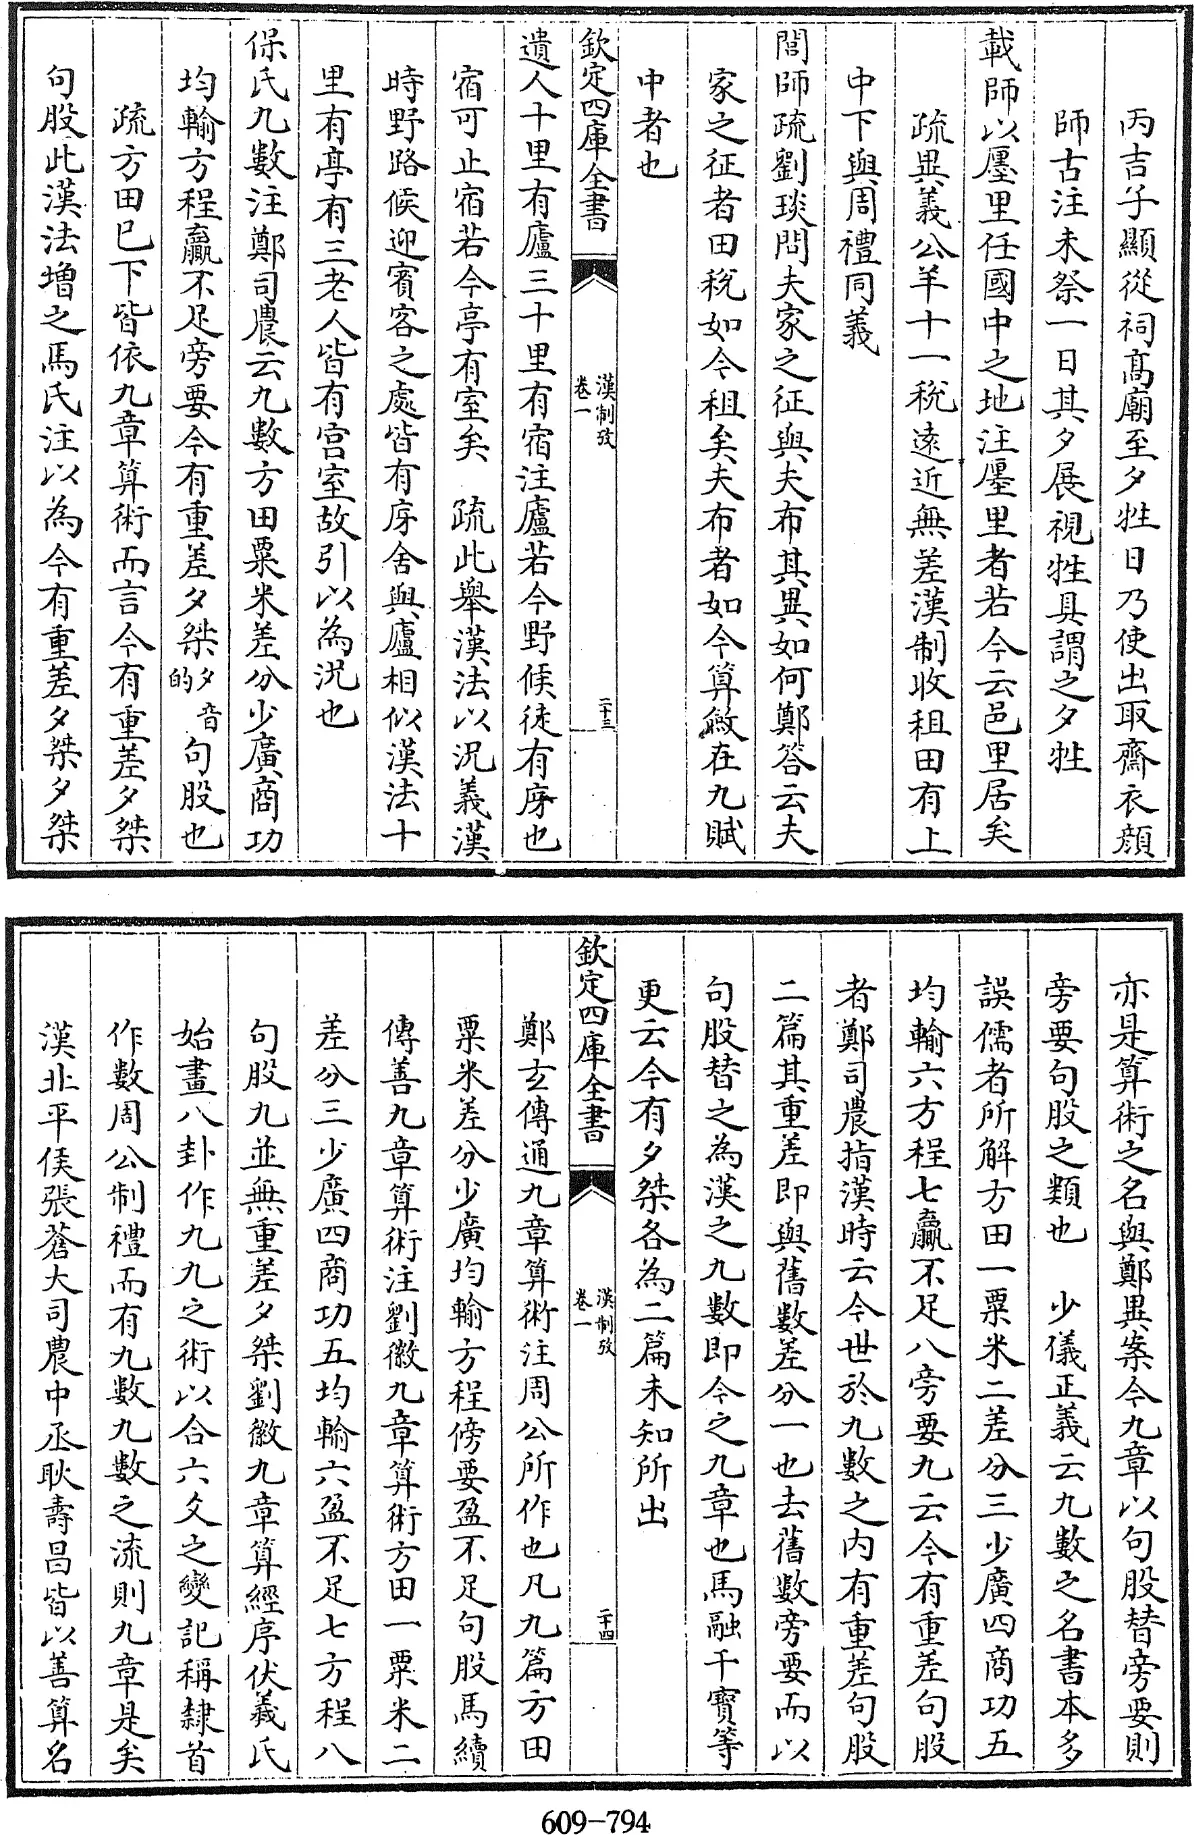 丙吉子顯從祠髙廟至夕牲日乃使出取齋衣顔
師古注未祭一日其夕展視牲具謂之夕牲
載師以㕓里任國中之地注㕓里者若今云邑里居矣
疏異義公羊十一稅逺近無差漢制收租田有上
中下與周禮同義
閭師疏劉琰問夫家之征與夫布其異如何鄭答云夫
家之征者田稅如今租矣夫布者如今算斂在九賦
中者也
欽定四庫全書
漢制攷
卷一
二十三
遺人十里有廬三十里有宿注廬若今野候徒有庌也
宿可止宿若今亭有室矣 疏此舉漢法以況義漢
時野路候迎賓客之處皆有庌舍與廬相似漢法十
里有亭亭有三老人皆有宫室故引以為況也
保氏九數注鄭司農云九數方田粟米差分少廣商功
均輸方程贏不足旁要今有重差夕桀夕音的句股也
疏方田已下皆依九章算術而言今有重差夕桀
句股此漢法增之馬氏注以為今有重差夕桀夕桀
亦是算術之名與鄭異案今九章以句股替旁要則
旁要句股之類也 少儀正義云九數之名書本多
誤儒者所解方田一粟米二差分三少廣四商功五
均輸六方程七贏不足八旁要九云今有重差句股
者鄭司農指漢時云今世於九數之内有重差句股
二篇其重差即與舊數差分一也去舊數旁要而以
句股替之為漢之九數即今之九章也馬融干寶等
更云今有夕桀各為二篇未知所出
欽定四庫全書
漢制攷
卷一
二十四
鄭玄傳通九章算術注周公所作也凡九篇方田
粟米差分少廣均輸方程傍要盈不足句股馬續
傳善九章算術注劉徽九章算術方田一粟米二
差分三少廣四商功五均輸六盈不足七方程八
句股九並無重差夕桀劉徽九章算經序伏羲氏
始畫八卦作九九之術以合六爻之變記稱隸首
作數周公制禮而有九數九數之流則九章是矣
漢北平侯張蒼大司農中丞耿壽昌皆以善算名
609-794